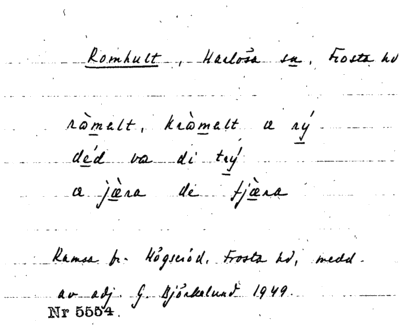 Romhult, Harlösa sn, Frosta hd
ràmalt, kràmalt a rý
déd va di trý
a jæ̀ra de fjæ̀ra
Ramsa fr. Högseröd, Frosta hd, medd.
av adj. G. Björkelund 1949.
Nr 5554.